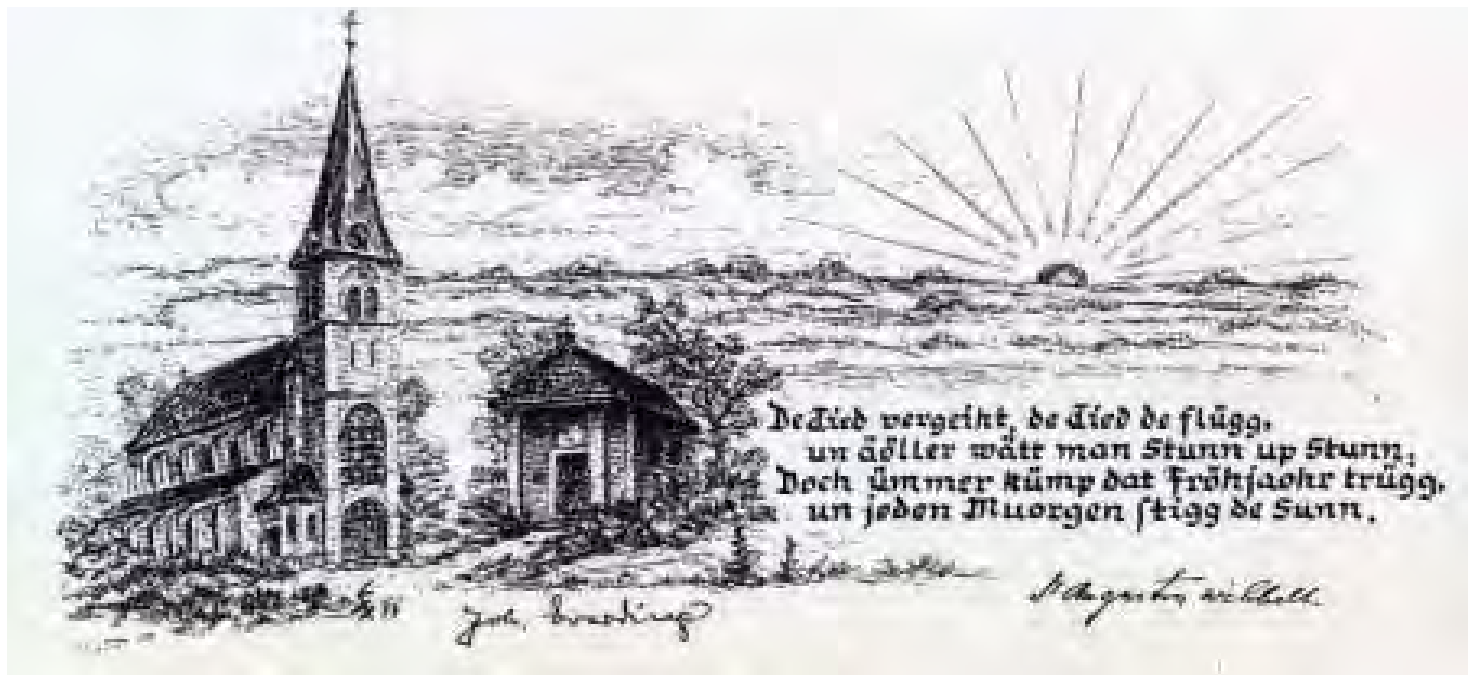 De Tied vergeiht, de Tied de flügg,
un äöller wätt man Stunn up Stunn;
Doch ümmer kümp dat Fröhjaohr trügg,
un jeden Muorgen stigg de Sunn.
Joh.
Dr Augustin Wibbelt.